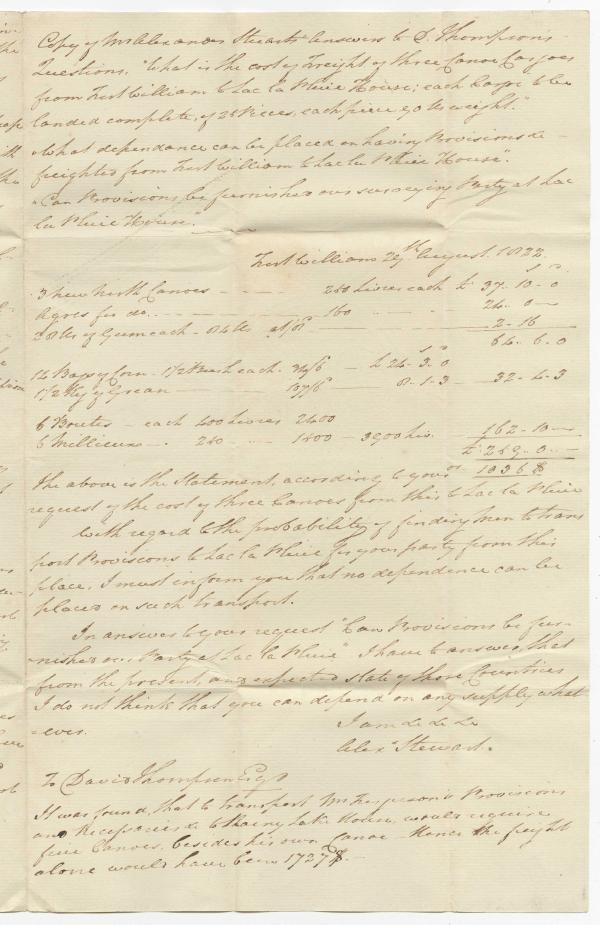 Copy of Mr Alexander Stewarts answers to D. Thompson's
Questions. "What is the cost of freight of three Canoe Cargoes
from Fort William to Lac la Pluie House; each Cargoe to be
landed complete, of 25 Pieces, each piece 90 lb weight."
"What dependance can be placed on having Provisions de
freighted from Fort William to Lac la Pluie House".
"Can Provisions be furnished our surveying Party at Lac
la Pluie House."
Fort William 29th August 1822.
3 New North Canoes - 250 Livres each £ 37. 10. 0
Agres for do. - 160 - 24. 0 -
28 lbs of Gum each - 84 lbs at /8 - 2. 16
64. 6. 0
14 Bags of Corn - 1 1/2 Bush each 34/6 - £ 24. 3. 0
1 1/2 Keg of Grease - 107/6 - 8. 1. 3 - 32. 4. 3
6 Boutes - each 400 Livres 2400
6 Millieux - 250 - 1500 - 3900 liv. 162. 10 -
£ 259. 0. -
1036 $
The above is the Statement, according to your
request of the cost of three Canoes from this to Lac la Pluie
With regard to the probability of finding men to trans
port Provisions to Lac la Pluie for your party from this
place, I must inform you that no dependence can be
placed on such transport.
In answer to your request "Can Provisions be fur-
-nished our Party at Lac la Pluie" I have to answer, that
from the present, and expected state of those Countries
I do not think that you can depend on any supply what
-ever.
I am &c &c &c
Alexr Stewart.
To David Thompson Esqr
It was found, that to transport Mr Ferguson's Provisions
and Necessaries &c to Rainy Lake House, would require
five Canoes, besides his own Canoe - Hence the freight
alone would have been 1727 $. -